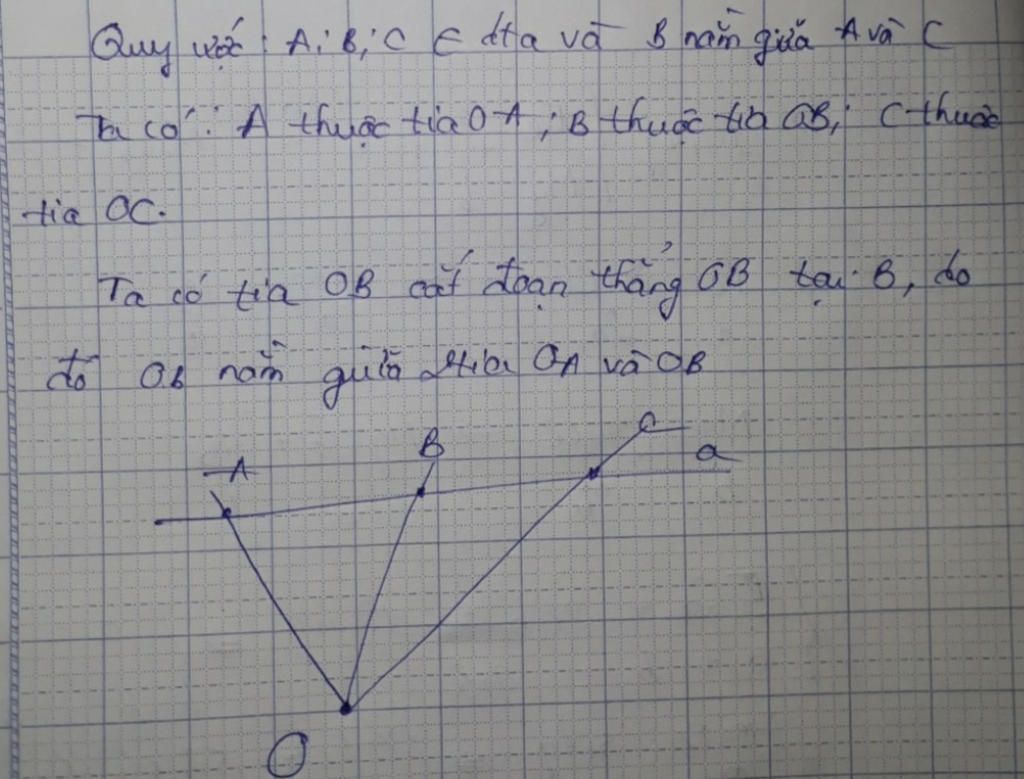 Quy ước: A; B; C ∈ đt a và B nằm giữa A và C
Ta có: A thuộc tia OA; B thuộc tia OB; C thuộc
tia OC.
Ta có tia OB cắt đoạn thẳng OB tại B, do
đó OB nằm giữa 2 tia OA và OB
A
B
C
a
O